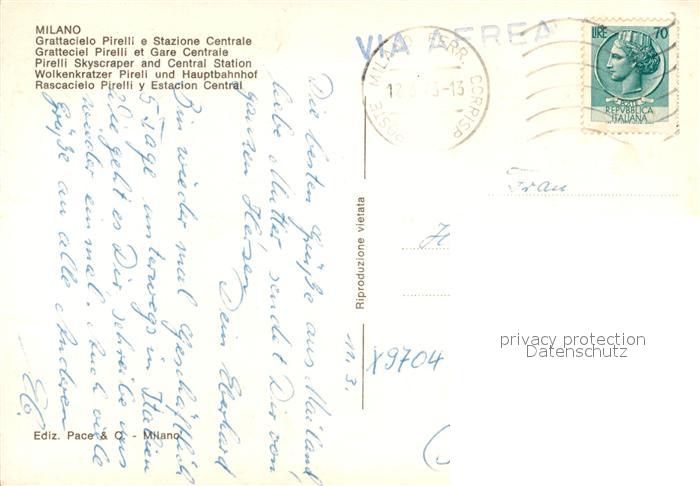 MILANO
Grattacielo Pirelli e Stazione Centrale
Gratteciel Pirelli et Gare Centrale
Pirelli Skyscraper and Central Station
Wolkenkratzer Pireli und Hauptbahnhof
Rascacielo Pirelli y Estacion Central
VIA AEREA
POSTE MILANO FERR. CORRISP.
LIRE 70
REPUBBLICA
ITALIANA
Die besten Grüße aus Mailand
liebe Mutter, sendet Dir von
ganzem Herzen
Dein Eberhard
Bin wieder mal geschäftlich
5 Tage unterwegs in Italien
Wie geht es Dir, schreibe uns
wieder einmal. Auch viele
Grüße an alle Anderen
11.3.
Riproduzione vietata
Frau
X9704
privacy protection
Datenschutz
Ediz. Pace & C. - Milano